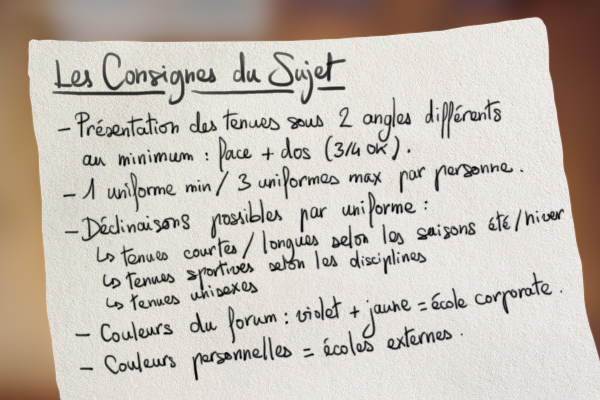 Les Consignes du Sujet
- Présentation des tenues sous 2 angles différents
au minimum : face + dos (3/4 OK).
- 1 uniforme min / 3 uniformes max par personne.
- Déclinaisons possibles par uniforme :
↳ tenues courtes / longues selon les saisons été/hiver
↳ tenues sportives selon les disciplines
↳ tenues unisexes
- Couleurs du forum : violet + jaune = école corporate.
- Couleurs personnelles = écoles externes.